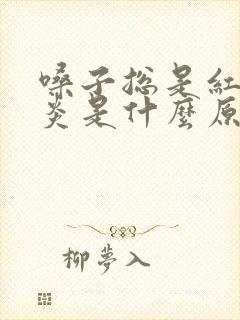 嗓子總是紅
炎是什麼原
柳夢入